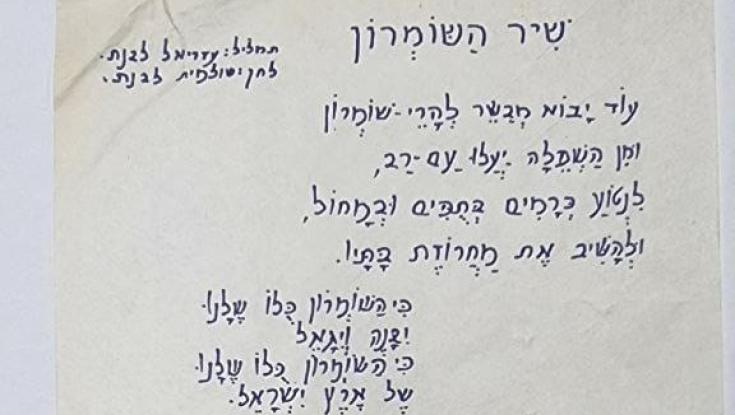 שִׁיר הַשּׁוֹמְרוֹן
תמליל: עדריאל לבנת.
לחן: שולמית לבנת.
עוֹד יָבוֹא מְבַשֵּׂר לְהָרֵי-שׁוֹמְרוֹן
וּמִן הַשְּׁפֵלָה יַעֲלוּ עַם-רַב,
לִנְטוֹעַ כְּרָמִים בְּתֻפִּים וּבְמָחוֹל,
וּלְהָשִׁיב אֶת מַחְרוֹזֶת בָּתָּיו.
כִּי הַשּׁוֹמְרוֹן כֻּלּוֹ שֶׁלָּנוּ
יִבָּנֶה וְיִגָּאֵל
כִּי הַשּׁוֹמְרוֹן כֻּלּוֹ שֶׁלָּנוּ
שֶׁל אֶרֶץ יִשְׂרָאֵל.